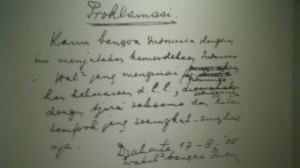 Proklamasi
Kami bangsa Indonesia dengan
ini menjatakan kemerdekaan Indonesia
Hal² jang mengenai
kekoeasaan d.l.l.,
dengan tjara saksama dan
tempoh jang sesingkat-singkat
nja.
Djakarta, 17-8-'05
Wakil² bangsa Indon.